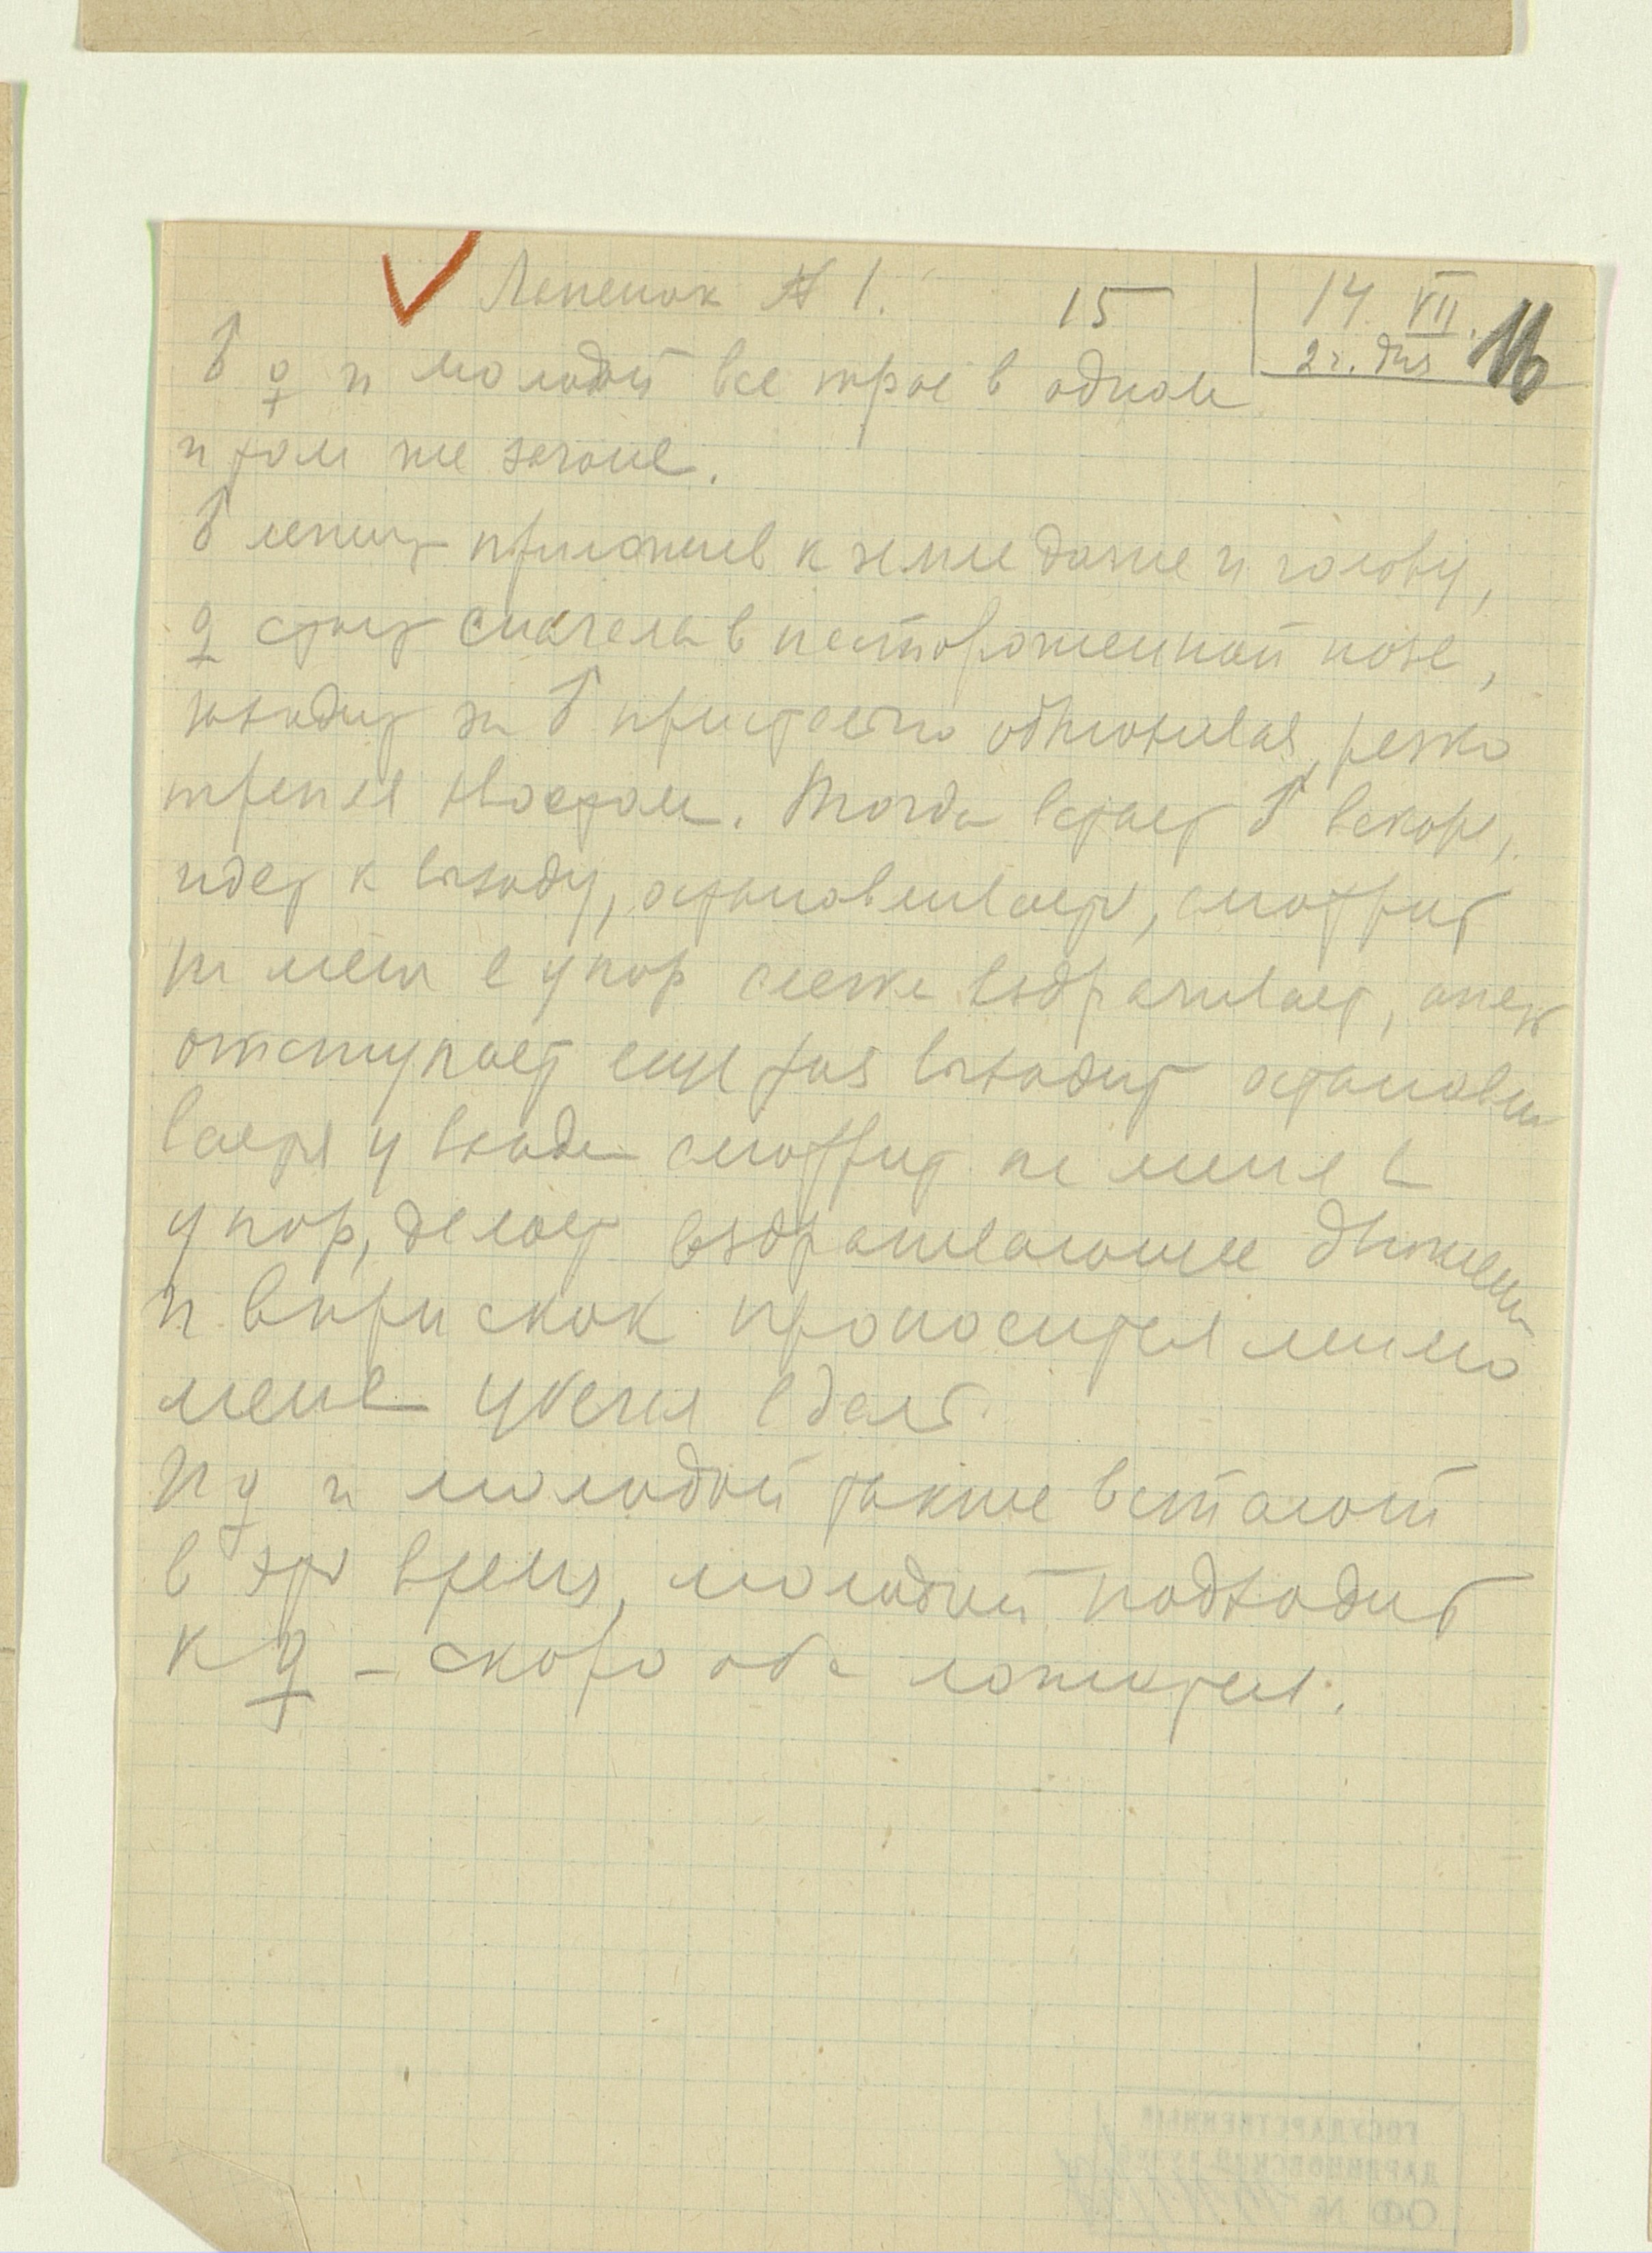 № 1. 15 14 VII. 16
2 ч. дня
♂ ♀ и молодой все трое в одном
и том же загоне.
♂ лежит приложив к земле даже и голову,
♀ стоит сначала в настороженной позе,
ходит за ♂ пристально обнюхивая, резко
трепля хвостом. Тогда встает ♂ вскоре,
идет к выходу, останавливается, смотрит
на меня в упор слегка вздрагивает, опять
отступает еще раз выходит останавли
вается у входа смотрит на меня в
упор, делает вздрагивающее движение
и вприскок проносится мимо
меня убегая вдаль.
И ♀ и молодой также встают
в это время, молодой подходит
к ♀ – скоро оба ложатся.
ГОСУДАРСТВЕННЫЙ
ДАРВИНОВСКИЙ МУЗЕЙ
ОФ №